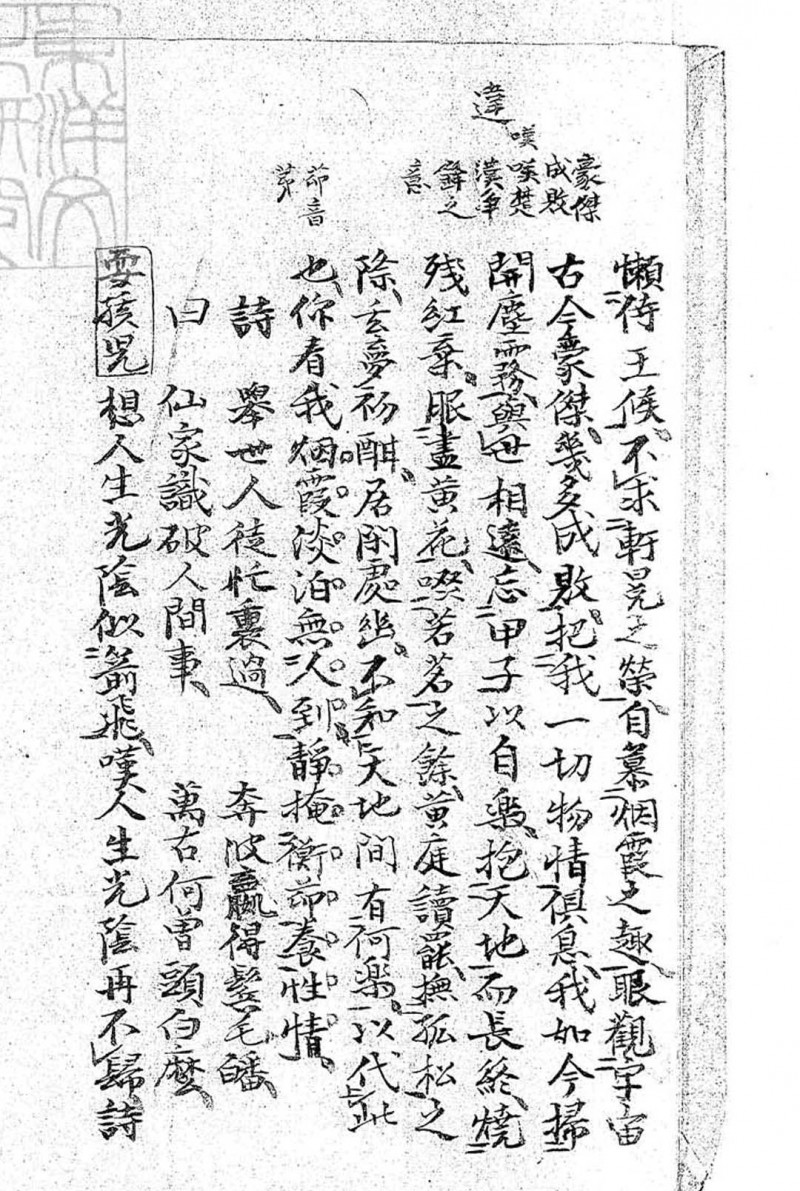 違
嘆
豪傑
成敗
嘆楚
漢爭
鋒之
意
節音
茆
懶待王侯不求軒冕之榮自慕烟霞之趣眼觀宇宙
古今豪傑幾多成敗把我一切物情俱息我如今掃
開塵霧與世相遠忘甲子以自樂抱天地而長終燒
殘紅葉眼盡黃花啜茗之餘黃庭讀罷撫孤松之
除玄夢初酣居閑處幽不知天地間有何樂以代此
也你看我烟霞淡泊無人到靜掩衡茆養性情
詩 舉世人徒忙裏過 奔波贏得鬂毛皤
曰 仙家識破人間事 萬古何曾頭白麼
耍孩兒 想人生光陰似箭飛嘆人生光陰再不歸詩